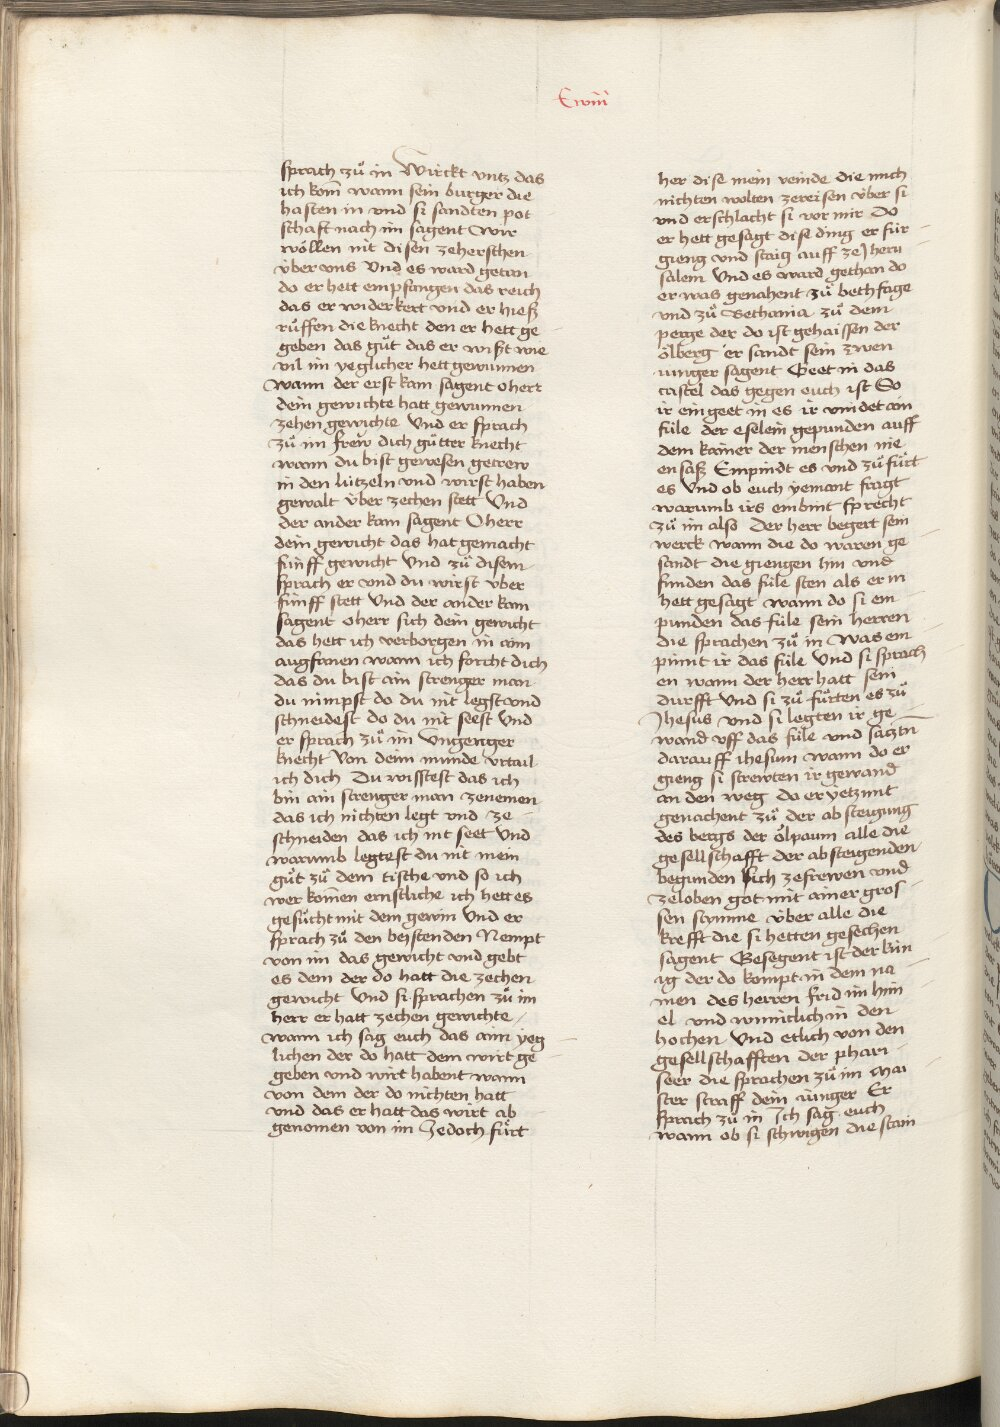 sprach zů in Wirckt vntz das
ich kom̄ wann sein burger die
hasten in vnd si sandten pot
schaft nach im sagent Wir
wöllen nit disen zeherschen
über vns Vnd es ward getan
do er hett empfangen das reich
das er widerkert vnd er hieß
růffen die knecht den er hett ge
geben das gůt das er wißt wie
vil im yeglicher hett gewunnen
wann der erst kam sagent o herr
dein gewichte hatt gewunnen
zehen gewichte Vnd er sprach
zů im frew dich gůtter knecht
wann du bist gewesen getrew
in den lützeln vnd wirst haben
gewalt über zechen stett Vnd
der ander kam sagent O herr
dein gewicht das hat gemacht
fünff gewicht Vnd zů disem
sprach er vnd du wirst vber
fünff stett Vnd der ander kam
sagent o herr sich dein gewicht
das hett ich verborgen in aim
augfanen wann ich forcht dich
das du bist ain strenger man
du nimpst do du nit legst vnd
schneidest do du nit seest Vnd
er sprach zů im Vngenger
knecht Von deim munde vrtail
ich dich Du wisstest das ich
bin ain strenger man zenemen
das ich nichten legt vnd ze
schneiden das ich nit seet Vnd
warumb legtest du nit mein
gůt zů dem tische vnd so ich
wer kom̄en ernstliche ich hett es
gesůcht mit dem gewin Vnd er
sprach zů den beystenden Nempt
von im das gewicht vnd gebt
es dem der do hatt die zechen
gewicht Vnd si sprachen zů im
herr er hatt zechen gewichte
wann ich sag euch das aim yeg
lichen der do hatt dem wirt ge
geben vnd wirt habent wann
von dem der do nichten hatt
vnd das er hatt das wirt ab
genomen von im Jedoch fůrt
her dise mein veinde die mich
nichten wolten zereisen über si
vnd erschlacht si vor mir Do
er hett gesagt dise ding er für
gieng vnd staig auff ze Jheru
salem Vnd es ward gethan do
er was genahent zů bethfage
vnd zů Bethania zů dem
perge der do ist gehaissen der
ölberg er sandt sein zwen
iunger sagent Geet in das
castel das gegen euch ist So
ir eingeet in es ir vindet ain
füle der eselein gepunden auff
dem kainer der menschen nie
ensaß Empindt es vnd zů fůrt
es Vnd ob euch yemant fragt
warumb irs embint sprecht
zů im also Der herr begert sein
werck wann die do waren ge
sandt die giengen hin vnd
funden das füle sten als er in
hett gesagt wann do si em
punden das füle sein herren
die sprachen zů in Was em
pinnt ir das füle Vnd si sprach
en wann der herr hatt sein
durfft Vnd si zů fůrten es zů
Jhesus vnd si legten ir ge
wand vff das füle vnd saczt̄n
darauff ihesum wann do er
gieng si strewten ir gewand
an den weg do er yetzunt
genachent zů der absteigung
des bergs der ölpaum alle die
gesellschafft der absteigenden
begunden sich zefrewen vnd
zeloben got mit ainer gros
sen stymme über alle die
krefft die si hetten gesechen
sagent Gesegent ist der kün
ig der do kompt in dem na
men des herren frid im him
el vnd wunniclich in den
hochen Vnd etlich von den
gesellschafften der phari
seer die sprachen zů im Mai
ster straff dein iunger Er
sprach zů in Ich sag euch
wann ob si schwigen die stain